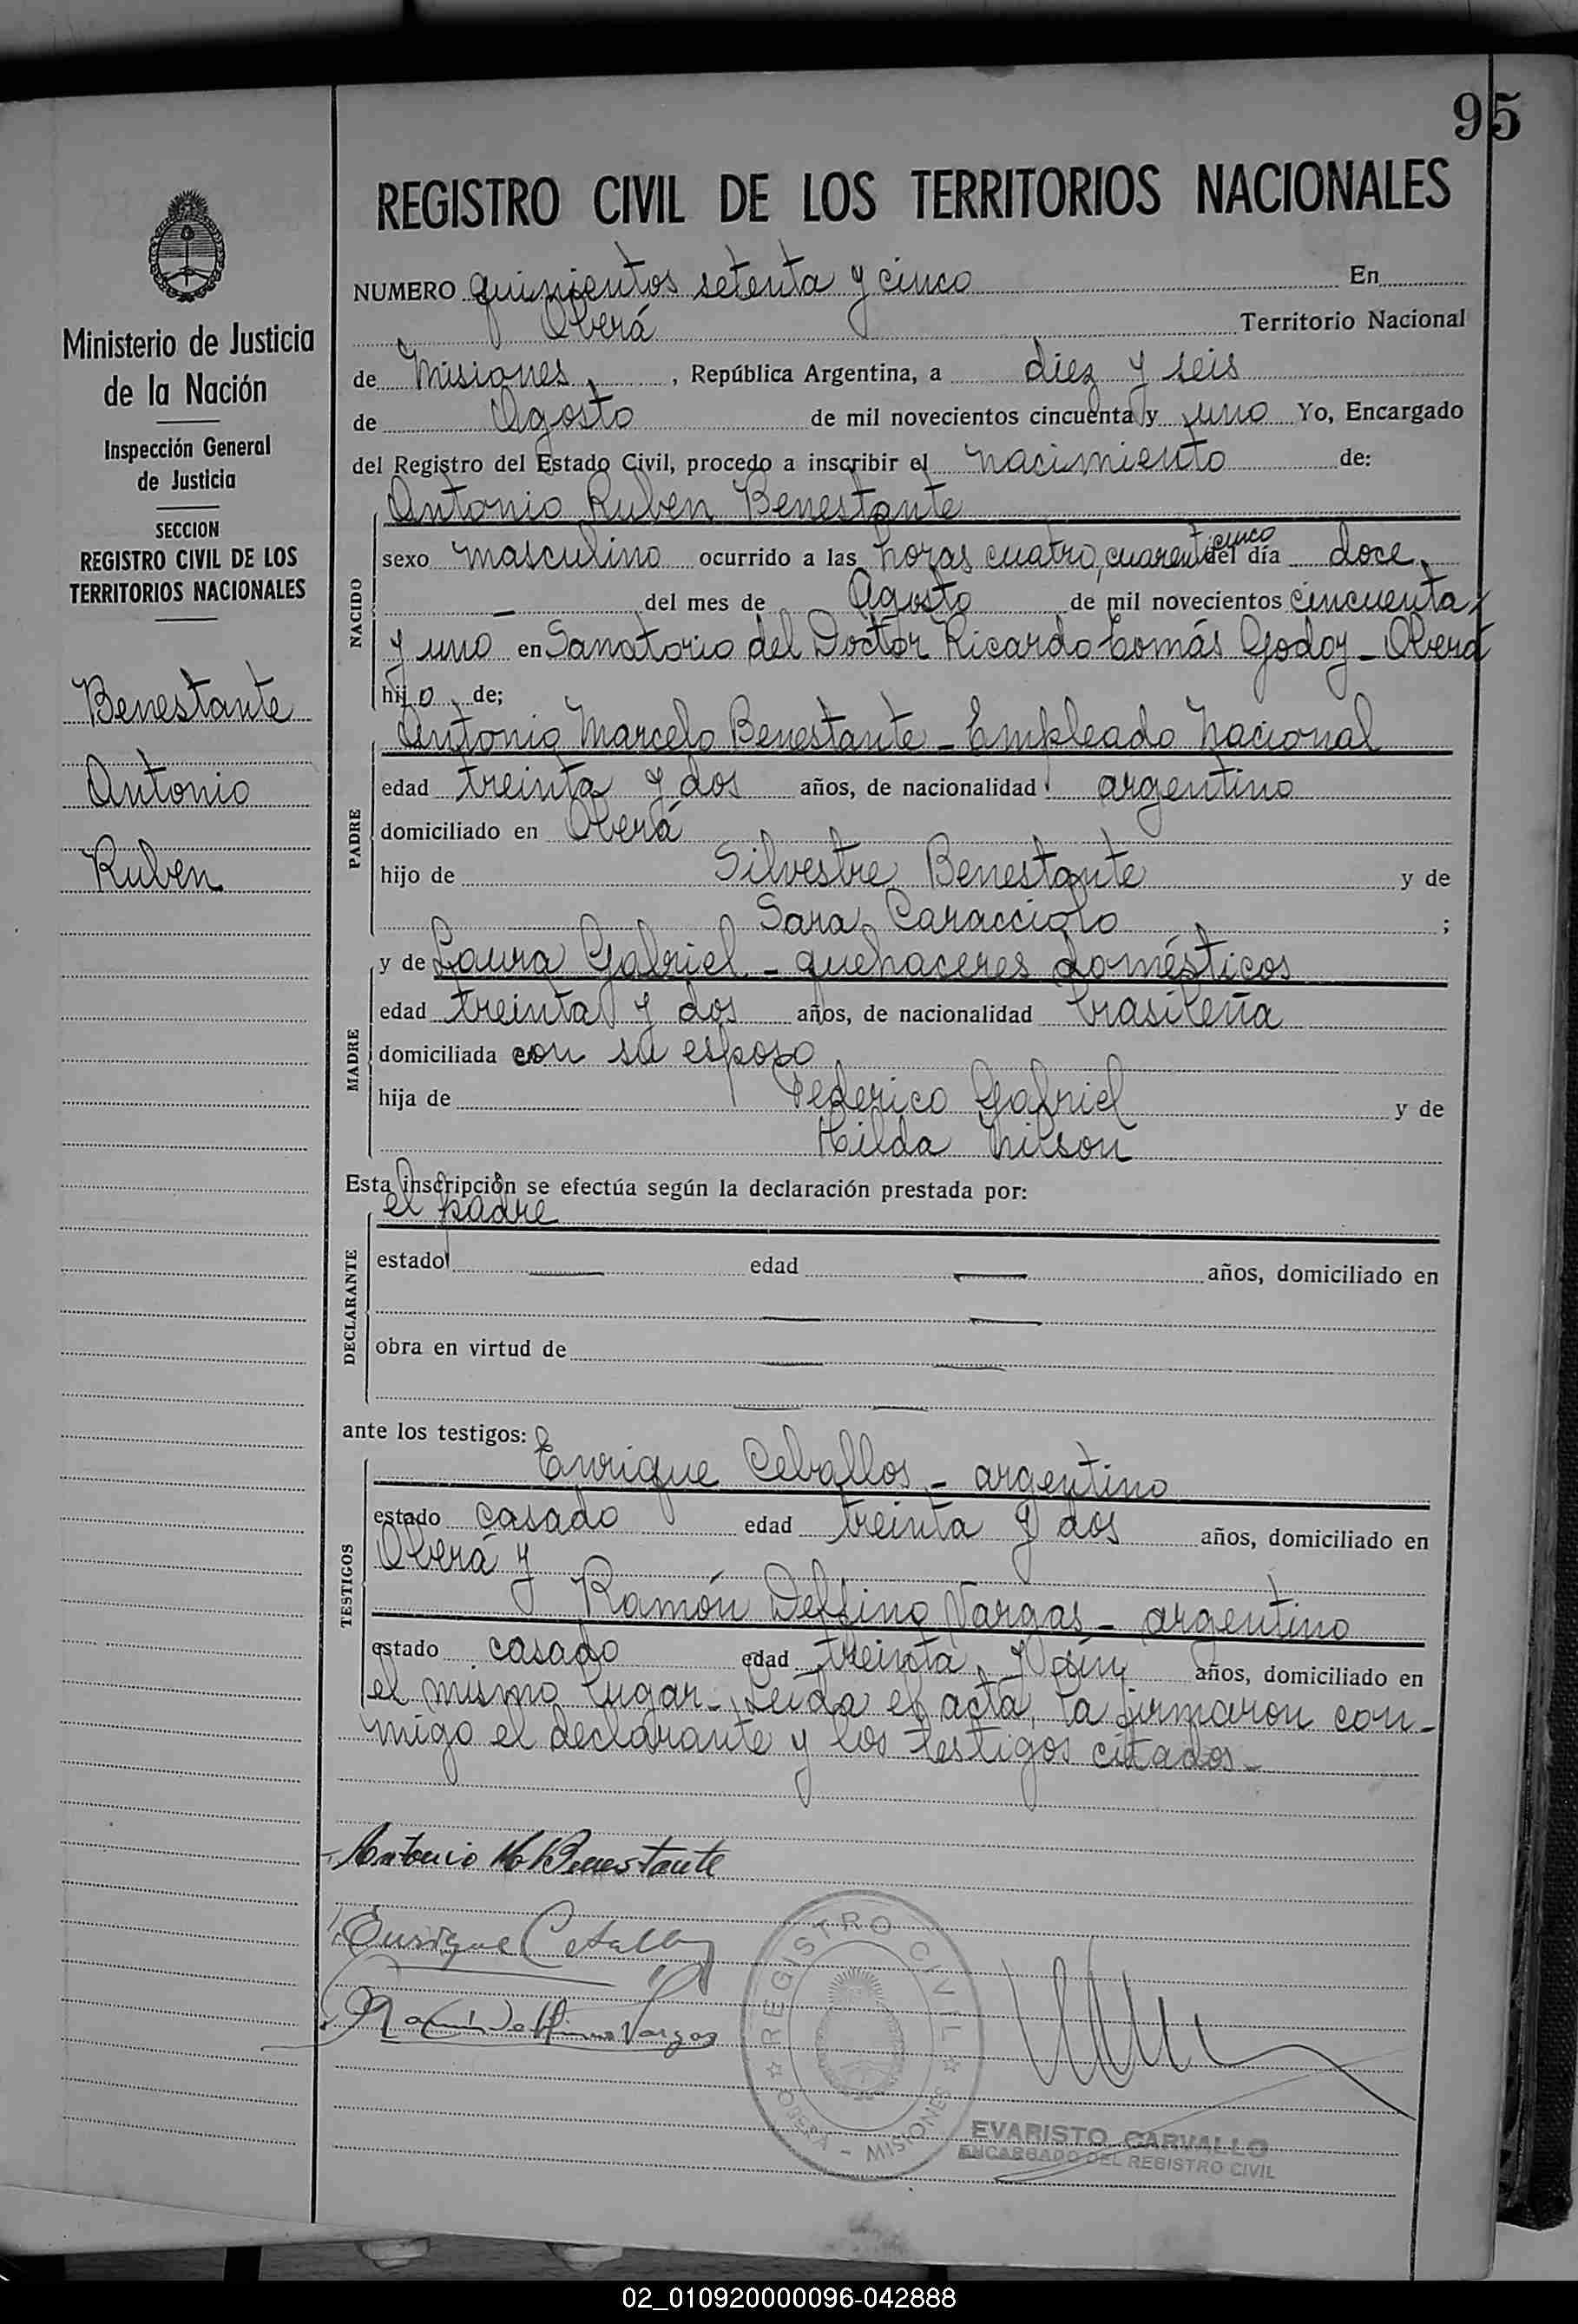 95
REGISTRO CIVIL DE LOS TERRITORIOS NACIONALES
Ministerio de Justicia
de la Nación
Inspección General
de Justicia
SECCION
REGISTRO CIVIL DE LOS
TERRITORIOS NACIONALES
Benestante
Antonio
Ruben
NUMERO quinientos setenta y cinco En
Oberá Territorio Nacional
de Misiones, República Argentina, a diez y seis
de Agosto de mil novecientos cincuenta y uno Yo, Encargado
del Registro del Estado Civil, procedo a inscribir el nacimiento de:
NACIDO
Antonio Ruben Benestante
sexo masculino ocurrido a las horas cuatro, cuarenticinco del día doce
del mes de Agosto de mil novecientos cincuenta
y uno en Sanatorio del Doctor Ricardo Tomás Godoy - Oberá
hijo de;
PADRE
Antonio Marcelo Benestante - Empleado Nacional
edad treinta y dos años, de nacionalidad argentino
domiciliado en Oberá
hijo de Silvestre Benestante y de
Sara Caracciolo ;
MADRE
y de Laura Gabriel - quehaceres domésticos
edad treinta y dos años, de nacionalidad brasileña
domiciliada con su esposo
hija de Federico Gabriel y de
Hilda Nilson
Esta inscripción se efectúa según la declaración prestada por:
DECLARANTE
el padre
estado edad años, domiciliado en
obra en virtud de
ante los testigos:
TESTIGOS
Enrique Ceballos - argentino
estado casado edad treinta y dos años, domiciliado en
Oberá y
Ramón Delfino Vargas - argentino
estado casado edad treinta y años, domiciliado en
el mismo lugar - Leída el acta, la firmaron con-
migo el declarante y los testigos citados -
Antonio M Benestante
Enrique Ceballos
Ramón Delfino Vargas
REGISTRO CIVIL
OBERA - MISIONES
EVARISTO CARVALLO
ENCARGADO DEL REGISTRO CIVIL
02_010920000096-042888